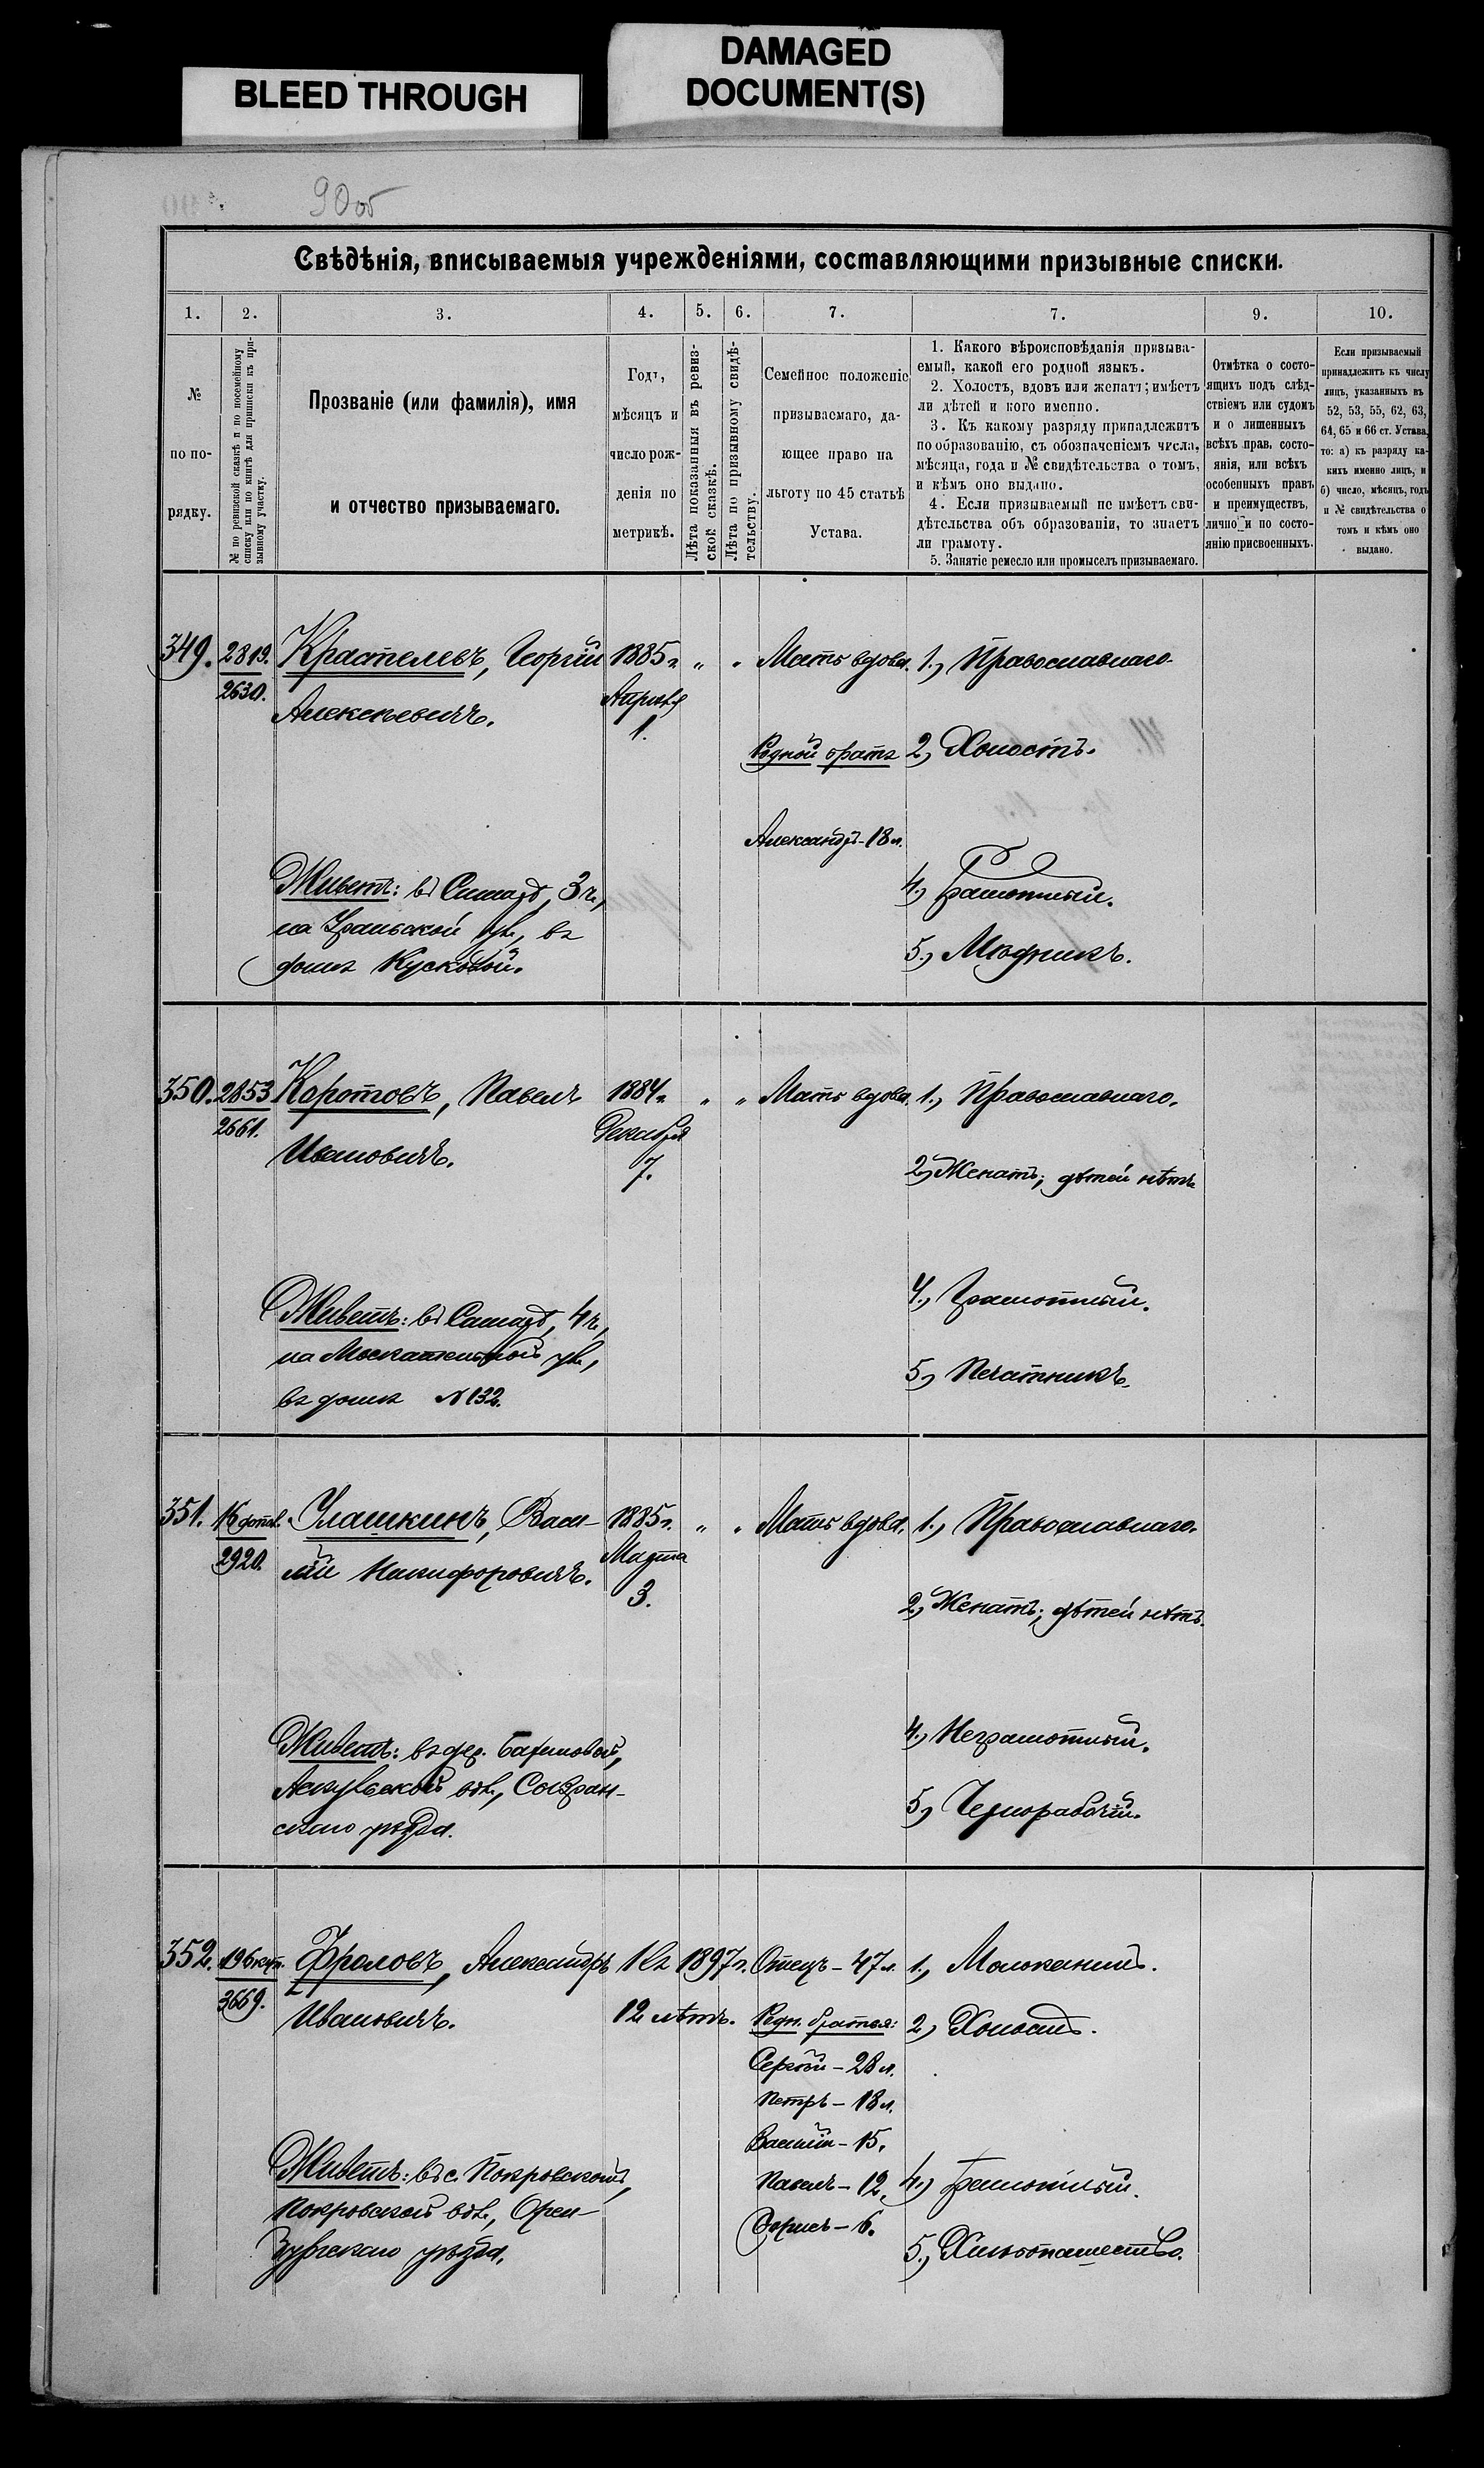 BLEED THROUGH
DAMAGED
DOCUMENT(S)
90об
Свѣдѣнія, вписываемыя учрежденіями, составляющими призывные списки.
1. 2. 3. 4. 5. 6. 7. 7. 9. 10.
№
по по-
рядку.
№ по ревизской сказкѣ и по посемейному
списку или по книгѣ для приписки къ при-
зывному участку.
Прозваніе (или фамилія), имя
и отчество призываемаго.
Годъ,
мѣсяцъ и
число рож-
денія по
метрикѣ.
Лѣта показанныя въ ревиз-
ской сказкѣ.
Лѣта по призывному свидѣ-
тельству.
Семейное положеніе
призываемаго, да-
ющее право на
льготу по 45 статьѣ
Устава.
1. Какого вѣроисповѣданія призыва-
емый, какой его родной языкъ.
2. Холостъ, вдовъ или женатъ; имѣетъ
ли дѣтей и кого именно.
3. Къ какому разряду принадлежитъ
по образованію, съ обозначеніемъ числа,
мѣсяца, года и № свидѣтельства о томъ,
и кѣмъ оно выдано.
4. Если призываемый не имѣетъ сви-
дѣтельства объ образованіи, то знаетъ
ли грамоту.
5. Занятіе ремесло или промыселъ призываемаго.
Отмѣтка о состо-
ящихъ подъ слѣд-
ствіемъ или судомъ
и о лишенныхъ
всѣхъ прав. состо-
янія, или всѣхъ
особенныхъ правъ
и преимуществъ,
лично и по состо-
янію присвоенныхъ.
Если призываемый
принадлежитъ къ числу
лицъ, указанныхъ въ
52, 53, 55, 62, 63,
64, 65 и 66 ст. Устава,
то: а) къ разряду ка-
кихъ именно лицъ, и
б) число, мѣсяцъ, годъ
и № свидѣтельства о
томъ и кѣмъ оно
выдано.
349. 2819. Крастелевъ, Георгій 1885 г. „ „ Мать вдова. 1., Православнаго.
2630. Алексѣевичъ. Апрѣля
1.
Родной братъ 2, Холостъ.
Александръ - 18 л.
Живетъ: въ Самарѣ, 3 ч., 4., Грамотный.
на Уральской ул., въ
домѣ Кусковой. 5., Мѣдникъ.
350. 2853 Каротовъ, Павелъ 1884 г. „ „ Мать вдова. 1., Православнаго.
2661. Ивановичъ. Декабря
7.
2, Женатъ; дѣтей нѣтъ
Живетъ: въ Самарѣ, 4 ч., 4., Грамотный.
на Москательной ул.,
въ домѣ № 132. 5, Печатникъ.
351. 16 доп. Улашкинъ, Васи- 1885 г. „ „ Мать вдова. 1., Православнаго.
2920. лій Никифоровичъ. Марта
3.
2, Женатъ; дѣтей нѣтъ.
Живетъ: въ дер. 4., Неграмотный.
Аскульской вол., Сызран-
скаго уѣзда. 5, Чернорабочій.
352. 196 куп. Фроловъ, Александръ Къ 1897 г. Отецъ - 47 л. 1., Молоканинъ.
3669. Ивановичъ. 12 лѣтъ. Родн. братья: 2, Холостъ.
Сергѣй - 28 л.
Петръ - 18 л.
Василій - 15.
Живетъ: въ с. Покровскомъ, Павелъ - 12. 4., Грамотный.
Покровской вол., Орен- - 6.
бургскаго уѣзда. 5., Хлѣбопашество.